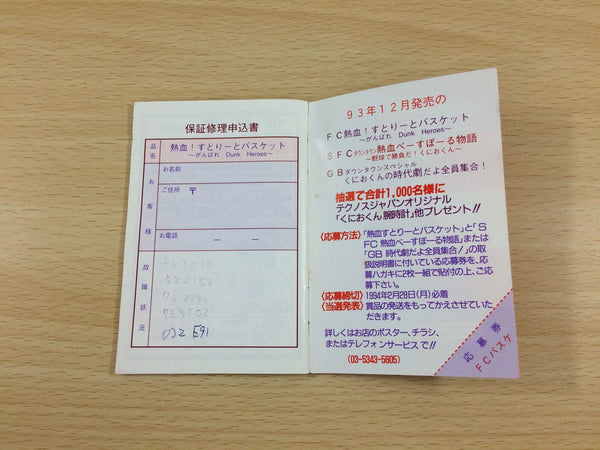 保証修理申込書
品名
熱血!すとりーとバスケット
〜がんばれ Dunk Heroes〜
お客様
お名前
ご住所 〒
お電話 ー ー
故障状況
93年12月発売の
FC熱血!すとりーとバスケット
〜がんばれ Dunk Heroes〜
SFCダウンタウン熱血べーすぼーる物語
〜野球で勝負だ!くにおくん〜
GBダウンタウンスペシャル
くにおくんの時代劇だよ全員集合!
抽選で合計1,000名様に
テクノスジャパンオリジナル
「くにおくん腕時計」他プレゼント!!
〈応募方法〉「熱血すとりーとバスケット」と「S
FC熱血べーすぼーる物語」または
「GB 時代劇だよ全員集合!」の取
扱説明書に付いている応募券を、応
募ハガキに2枚一組で貼付の上、ご応
募下さい。
〈応募締切〉1994年2月28日(月)必着
〈当選発表〉賞品の発送をもってかえさせていた
だきます。
詳しくはお店のポスター、チラシ、
またはテレフォンサービスで!!
(03-5343-5605)
応募券
FCバスケ